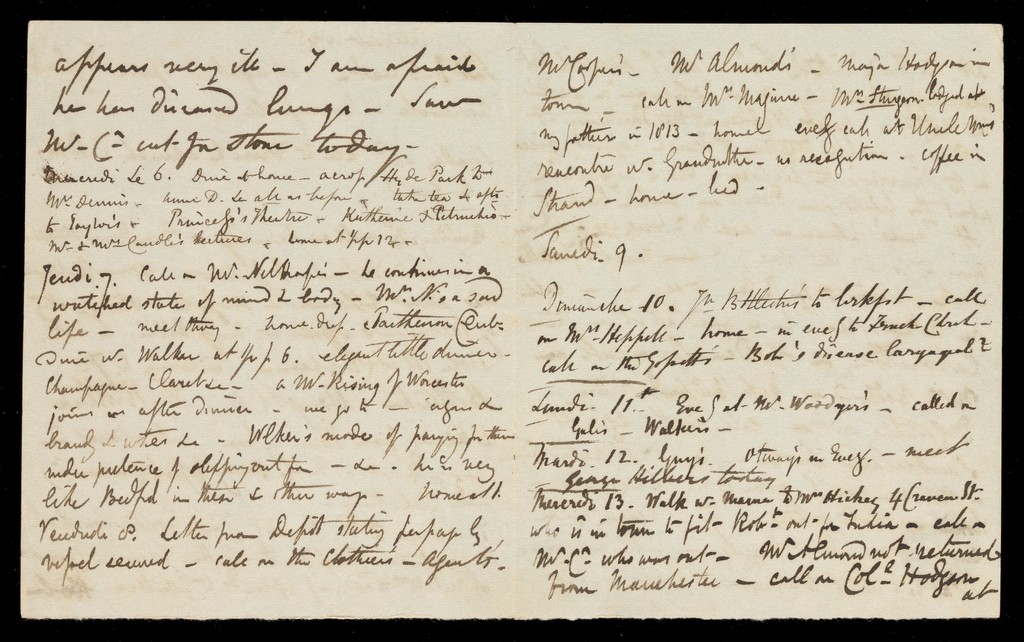 appears very ill - I am afraid
he has diseased lungs - Saw
Mr. Cn cut for stone today -
Mercredi Le 6. Dine at home - across Hyde Park to
Mr Dennis - Anne D. &c all as before - take tea & aftr
to Taylor's - Princess's Theatre - Katherine & Petruchio -
Mr & Mrs Caudle's Lectures - home at ½ p 12 -
Jeudi. 7. Call on Mr. - he continues in a
wretched state of mind & body - Mrs N. is a sad
life - meet - home - Parthenon Club -
Dine w. Walker at ½ p 6. elegant little dinner -
Champagne - Claret &c - a Mr Rising of Worcester
joins us after dinner - we go to - cigars &
brandy & &c - Wlker's mode of paying for them
under pretence of slipping out for - &c. he is very
like Bedford in these & other ways - home at 1.
Vendredi 8. Letter from Depôt stating passage by
vessel secured - call on the Clothiers - Agents -
Mr Cooper's - Mr Almond's - Major Hodgson in
town - call on Mrs Maguire - Mrs Sturgeon lodged at
my father's in 1813 - home eveg call at Uncle Wm's
rencontre w. Grandmother - no recognition - coffee in
Strand - home - bed -
Samedi. 9.
Dimanche 10. to brkfst - call
on Mrs Heppell - home - in eveg to French Chrch -
call on the - Bob's disease laryngeal?
Lundi. 11th Eveg at Mr. Woodyer's - called on
- Walker's -
Mardi. 12. Guy's. Otways in Eveg. - meet
George Hilliers today
Mercredi 13. Walk w. Mama to Mrs Hickey 4 Craven St.
who is in town to fit Robt out for India - call on
Mr. Cn who was out - Mr Almond not returned
from Manchester - call on Coll Hodgson
at